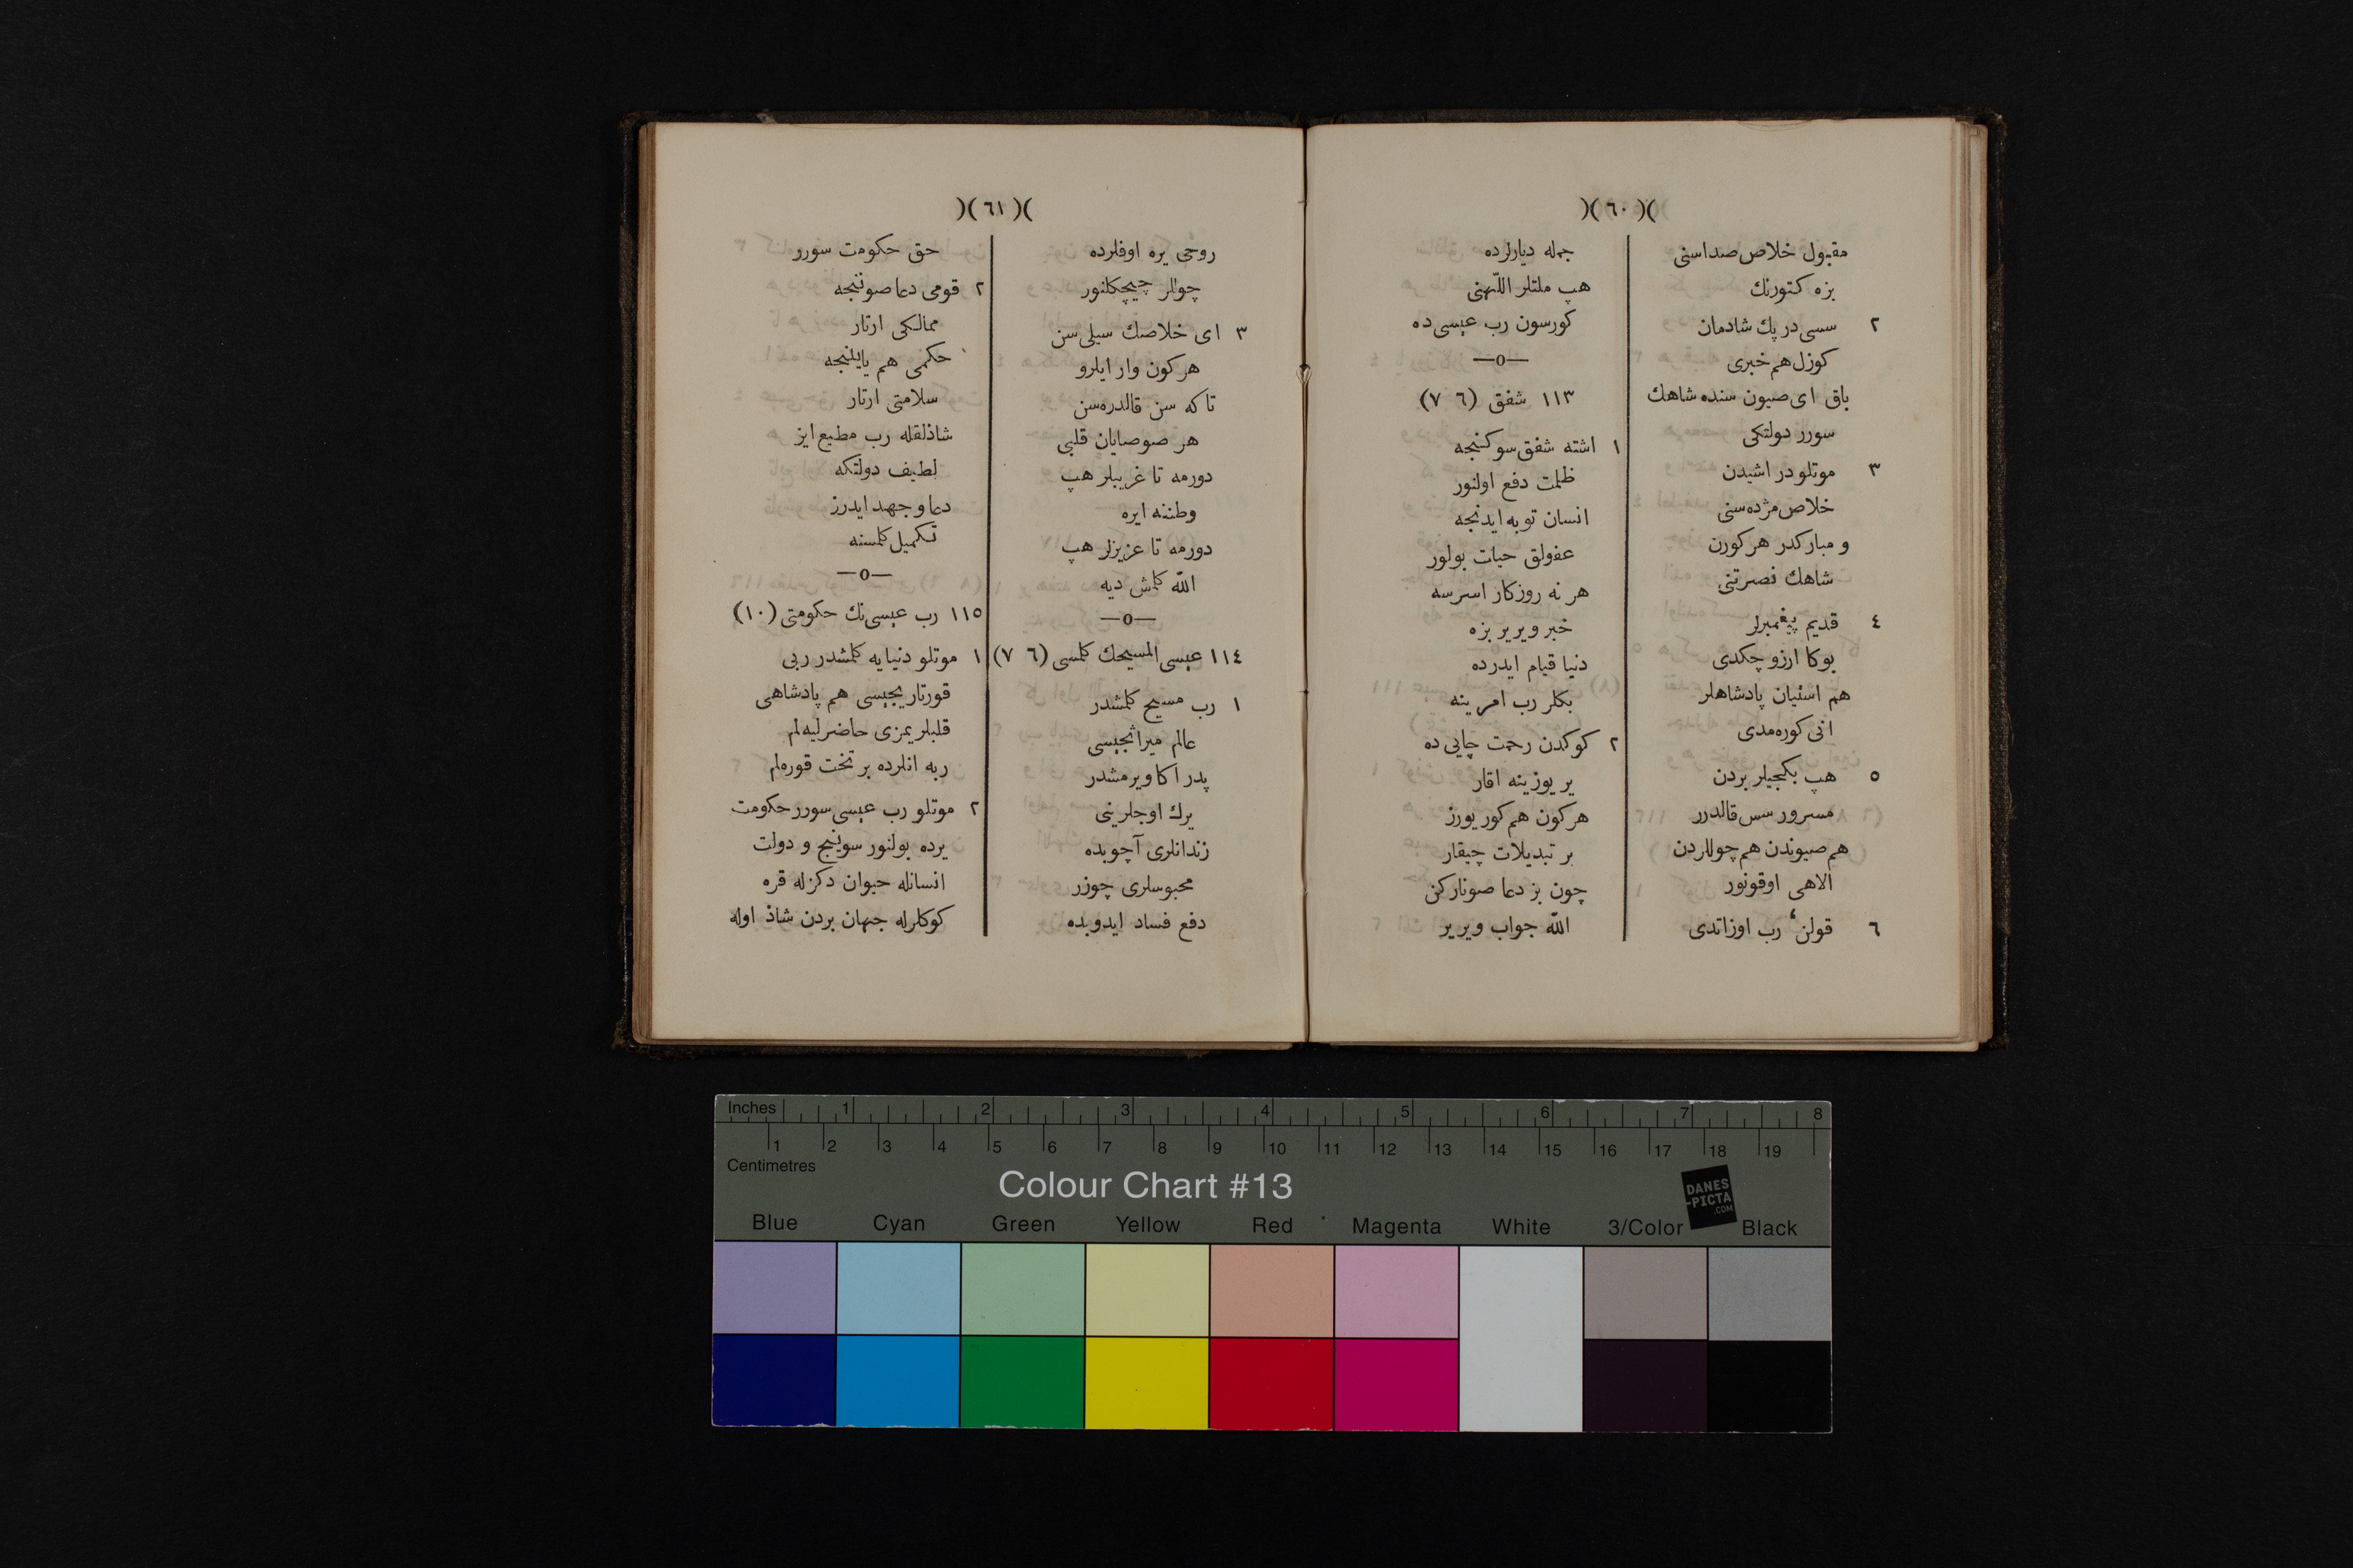 )( ٦٠ )(
مقبول خلاص صداسنی
بزه کتورنك
٢ سسی در پك شادمان
کوزل هم خبری
باق ای صیون سنده شاهك
سورر دولتکی
٣ موتلو در اشیدن
خلاص مژده‌سنی
و مبارکدر هر کورن
شاهك نصرتنی
٤ قدیم پیغمبرلر
بوکا ارزو چکدی
هم استیان پادشاهلر
انی کوره‌مدی
٥ هپ بکجیلر بردن
مسرور سس قالدرر
هم صیوندن هم چوللردن
الاهی اوقونور
٦ قولن، رب اوزاتدی
جمله دیارلرده
هپ ملتلر اللّهنی
کورسون رب عیسی ده
—o—
١١٣ شفق (٦ ٧)
١ اشته شفق سوکنجه
ظلمت دفع اولنور
انسان توبه ایدنجه
عفولق حیات بولور
هر نه روزکار اسرسه
خبر ویریر بزه
دنیا قیام ایدرده
بکلر رب امرینه
٢ کوکدن رحمت چایی ده
یر یوزینه اقار
هرکون هم کوریورز
بر تبدیلات چیقار
چون بز دعا صونارکن
اللّه جواب ویریر
)( ٦١ )(
روحی یره اوفلرده
چوللر چیچکلنور
٣ ای خلاصك سیلی سن
هرکون وار ایلرو
تا که سن قالدره‌سن
هر صوصایان قلبی
دورمه تا غریبلر هپ
وطننه ایره
دورمه تا عزیزلر هپ
اللّه کلمش دیه
—o—
١١٤ عیسی المسیحك کلمسی (٦ ٧)
١ رب مسیح کلمشدر
عالم میراثجیسی
پدر اکا ویرمشدر
یرك اوجلرینی
زندانلری آچوبده
محبوسلری چوزر
دفع فساد ایدوبده
حق حکومت سورر
٢ قومی دعا صوننجه
ممالکی ارتار
حکمی هم یایلنجه
سلامتی ارتار
شاذلقله رب مطیع ایز
لطیف دولتکه
دعا و جهد ایدرز
تکمیل کلمسنه
—o—
١١٥ رب عیسی نك حکومتی (١٠)
١ موتلو دنیایه کلمشدر ربی
قورتاریجیسی هم پادشاهی
قلبلریمزی حاضرلیه‌لم
ربه انلرده بر تخت قوره‌لم
٢ موتلو رب عیسی سورر حکومت
یرده بولنور سوینج و دولت
انسانله حیوان دکزله قره
کوکلرله جهان بردن شاذ اوله
Inches 1 2 3 4 5 6 7 8
1 2 3 4 5 6 7 8 9 10 11 12 13 14 15 16 17 18 19
Centimetres
Colour Chart #13
DANES
-PICTA
.COM
Blue Cyan Green Yellow Red Magenta White 3/Color Black